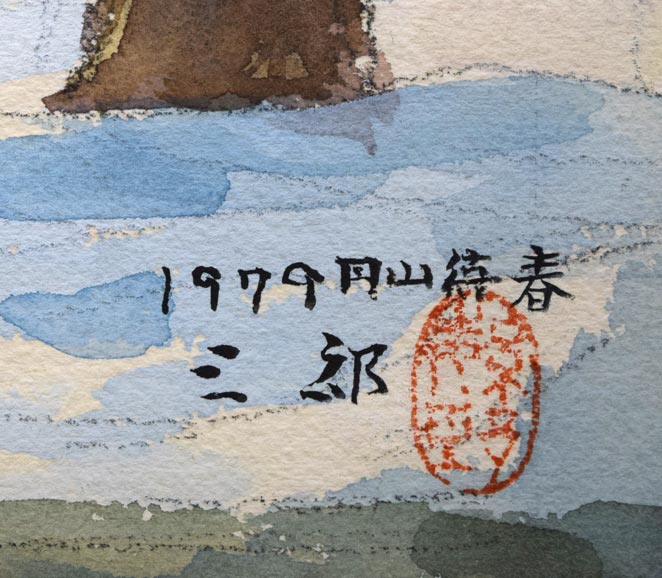 1979 円山待春
三郎